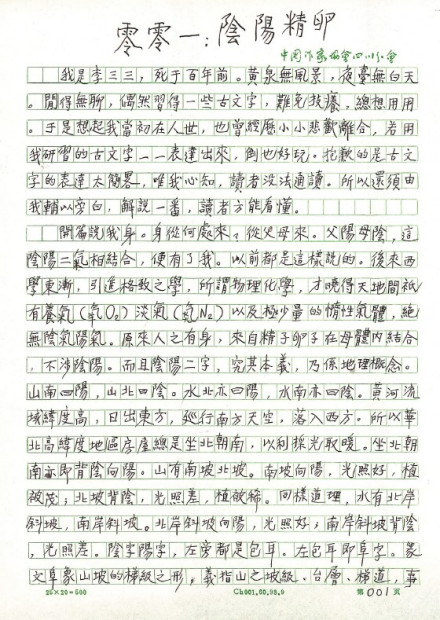 零零一：陰陽精卵
中国作家协会四川分会
我是李三三，死于百年前。黄泉無風景，夜臺無白天
。閒得無聊，偶然習得一些古文字，難免技癢，總想用用
。于是想起我當初在人世，也曾經歷小小悲歡離合，若用
我研習的古文字一一表達出來，倒也好玩。抱歉的是古文
字的表達太簡畧，唯我心知，讀者没法通讀。所以還須由
我輔以旁白，解說一番，讀者方能看懂。
開篇說我身。身從何處來，從父母來。父陽母陰，這
陰陽二氣相結合，便有了我。以前都是這樣說的。後來西
學東漸，引進格致之學，所謂物理化學，才曉得天地間祇
有養氣（氧O₂）淡氣（氮N₂）以及極少量的惰性氣體，絶
無陰氣陽氣。原來人之有身，來自精子卵子在母體内結合
，不涉陰陽。而且陰陽二字，究其本義，乃係地理概念。
山南曰陽，山北曰陰。水北亦曰陽，水南亦曰陰。黄河流
域緯度高，日出東方，經行南方天空，落入西方。所以華
北高緯度地區房屋總是坐北朝南，以利採光取暖。坐北朝
南亦即背陰向陽。山有南坡北坡。南坡向陽，光照好，植
被茂；北坡背陰，光照差，植被稀。同樣道理，水有北岸
斜坡，南岸斜坡。北岸斜坡向陽，光照好；南岸斜坡背陰
，光照差。陰字陽字，左旁都是包耳。左包耳即阜字。篆
文阜象山坡的梯級之形，義指山之坡級、台層、梯道，事
25×20＝500 Ch001.60.98.9 第001頁